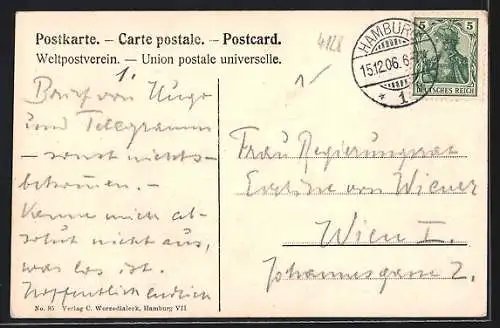 Postkarte. — Carte postale. — Postcard.
Weltpostverein. — Union postale universelle.
4128
HAMBURG
15.12.06. 6-
* 1
5 5
DEUTSCHES REICH
1.
Brief von Hugo
und Telegramm
– sonst nichts
bekommen. –
Kenne mich ab-
solut nicht aus,
was los ist.
Hoffentlich endlich
Frau Regierungsrat
von Wiener
Wien I.
Johannesgasse 2.
No. 95 Verlag C. Worzedialeck, Hamburg VII